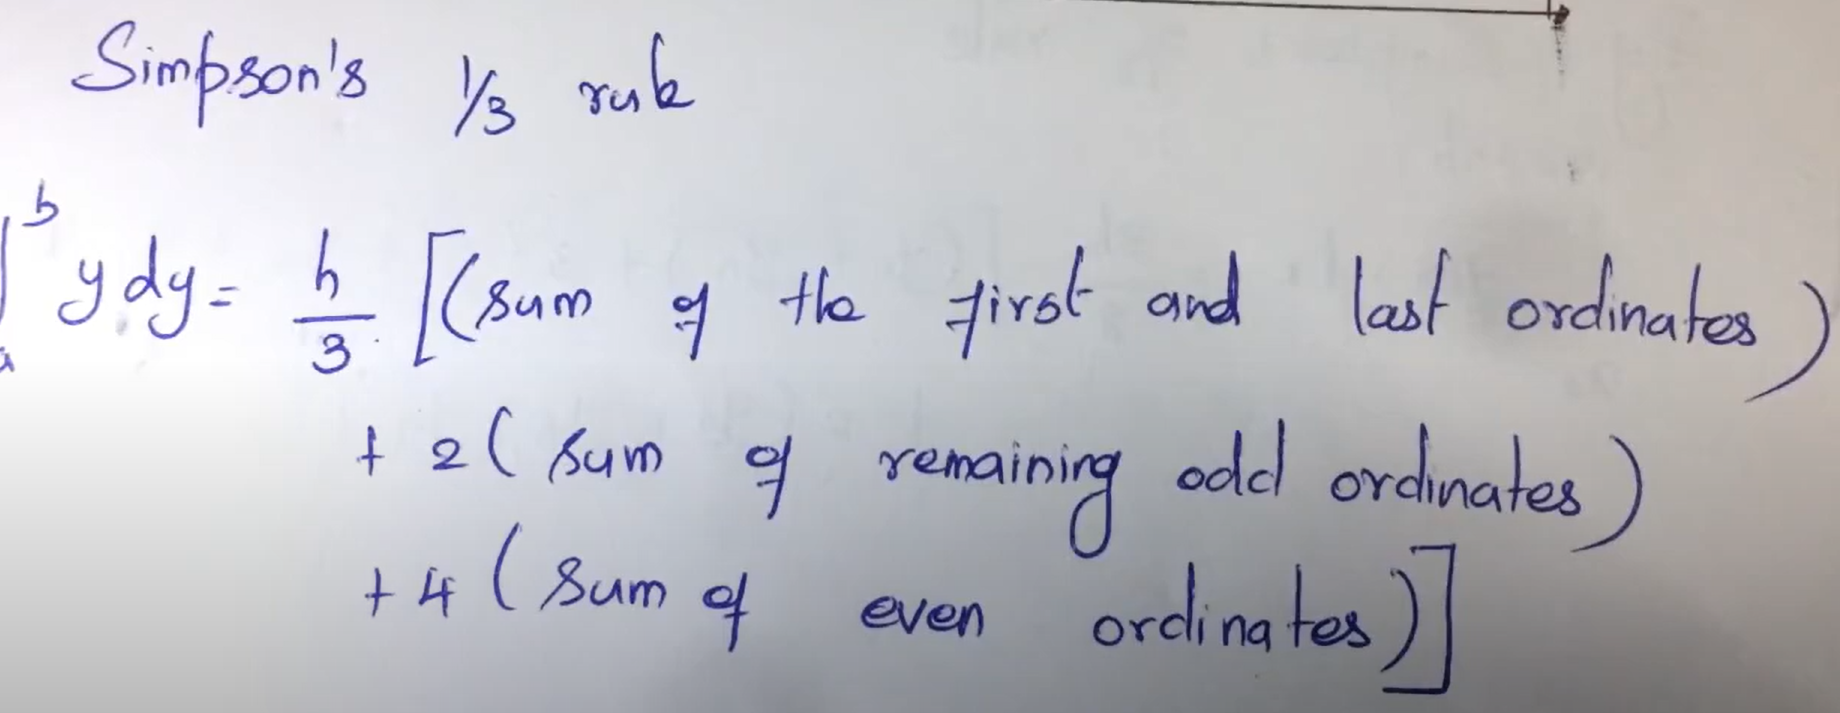 Simpson's 1/3 rule
∫ₐᵇ y dy = h/3 [(sum of the first and last ordinates)
+ 2 (sum of remaining odd ordinates)
+ 4 (sum of even ordinates)]